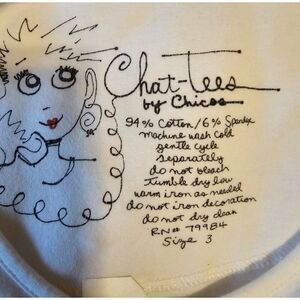 Chat-Tees
by Chicos
94% Cotton/6% Spandex
machine wash cold
gentle cycle
separately
do not bleach
tumble dry low
warm iron as needed
do not iron decoration
do not dry clean
RN# 79984
Size 3